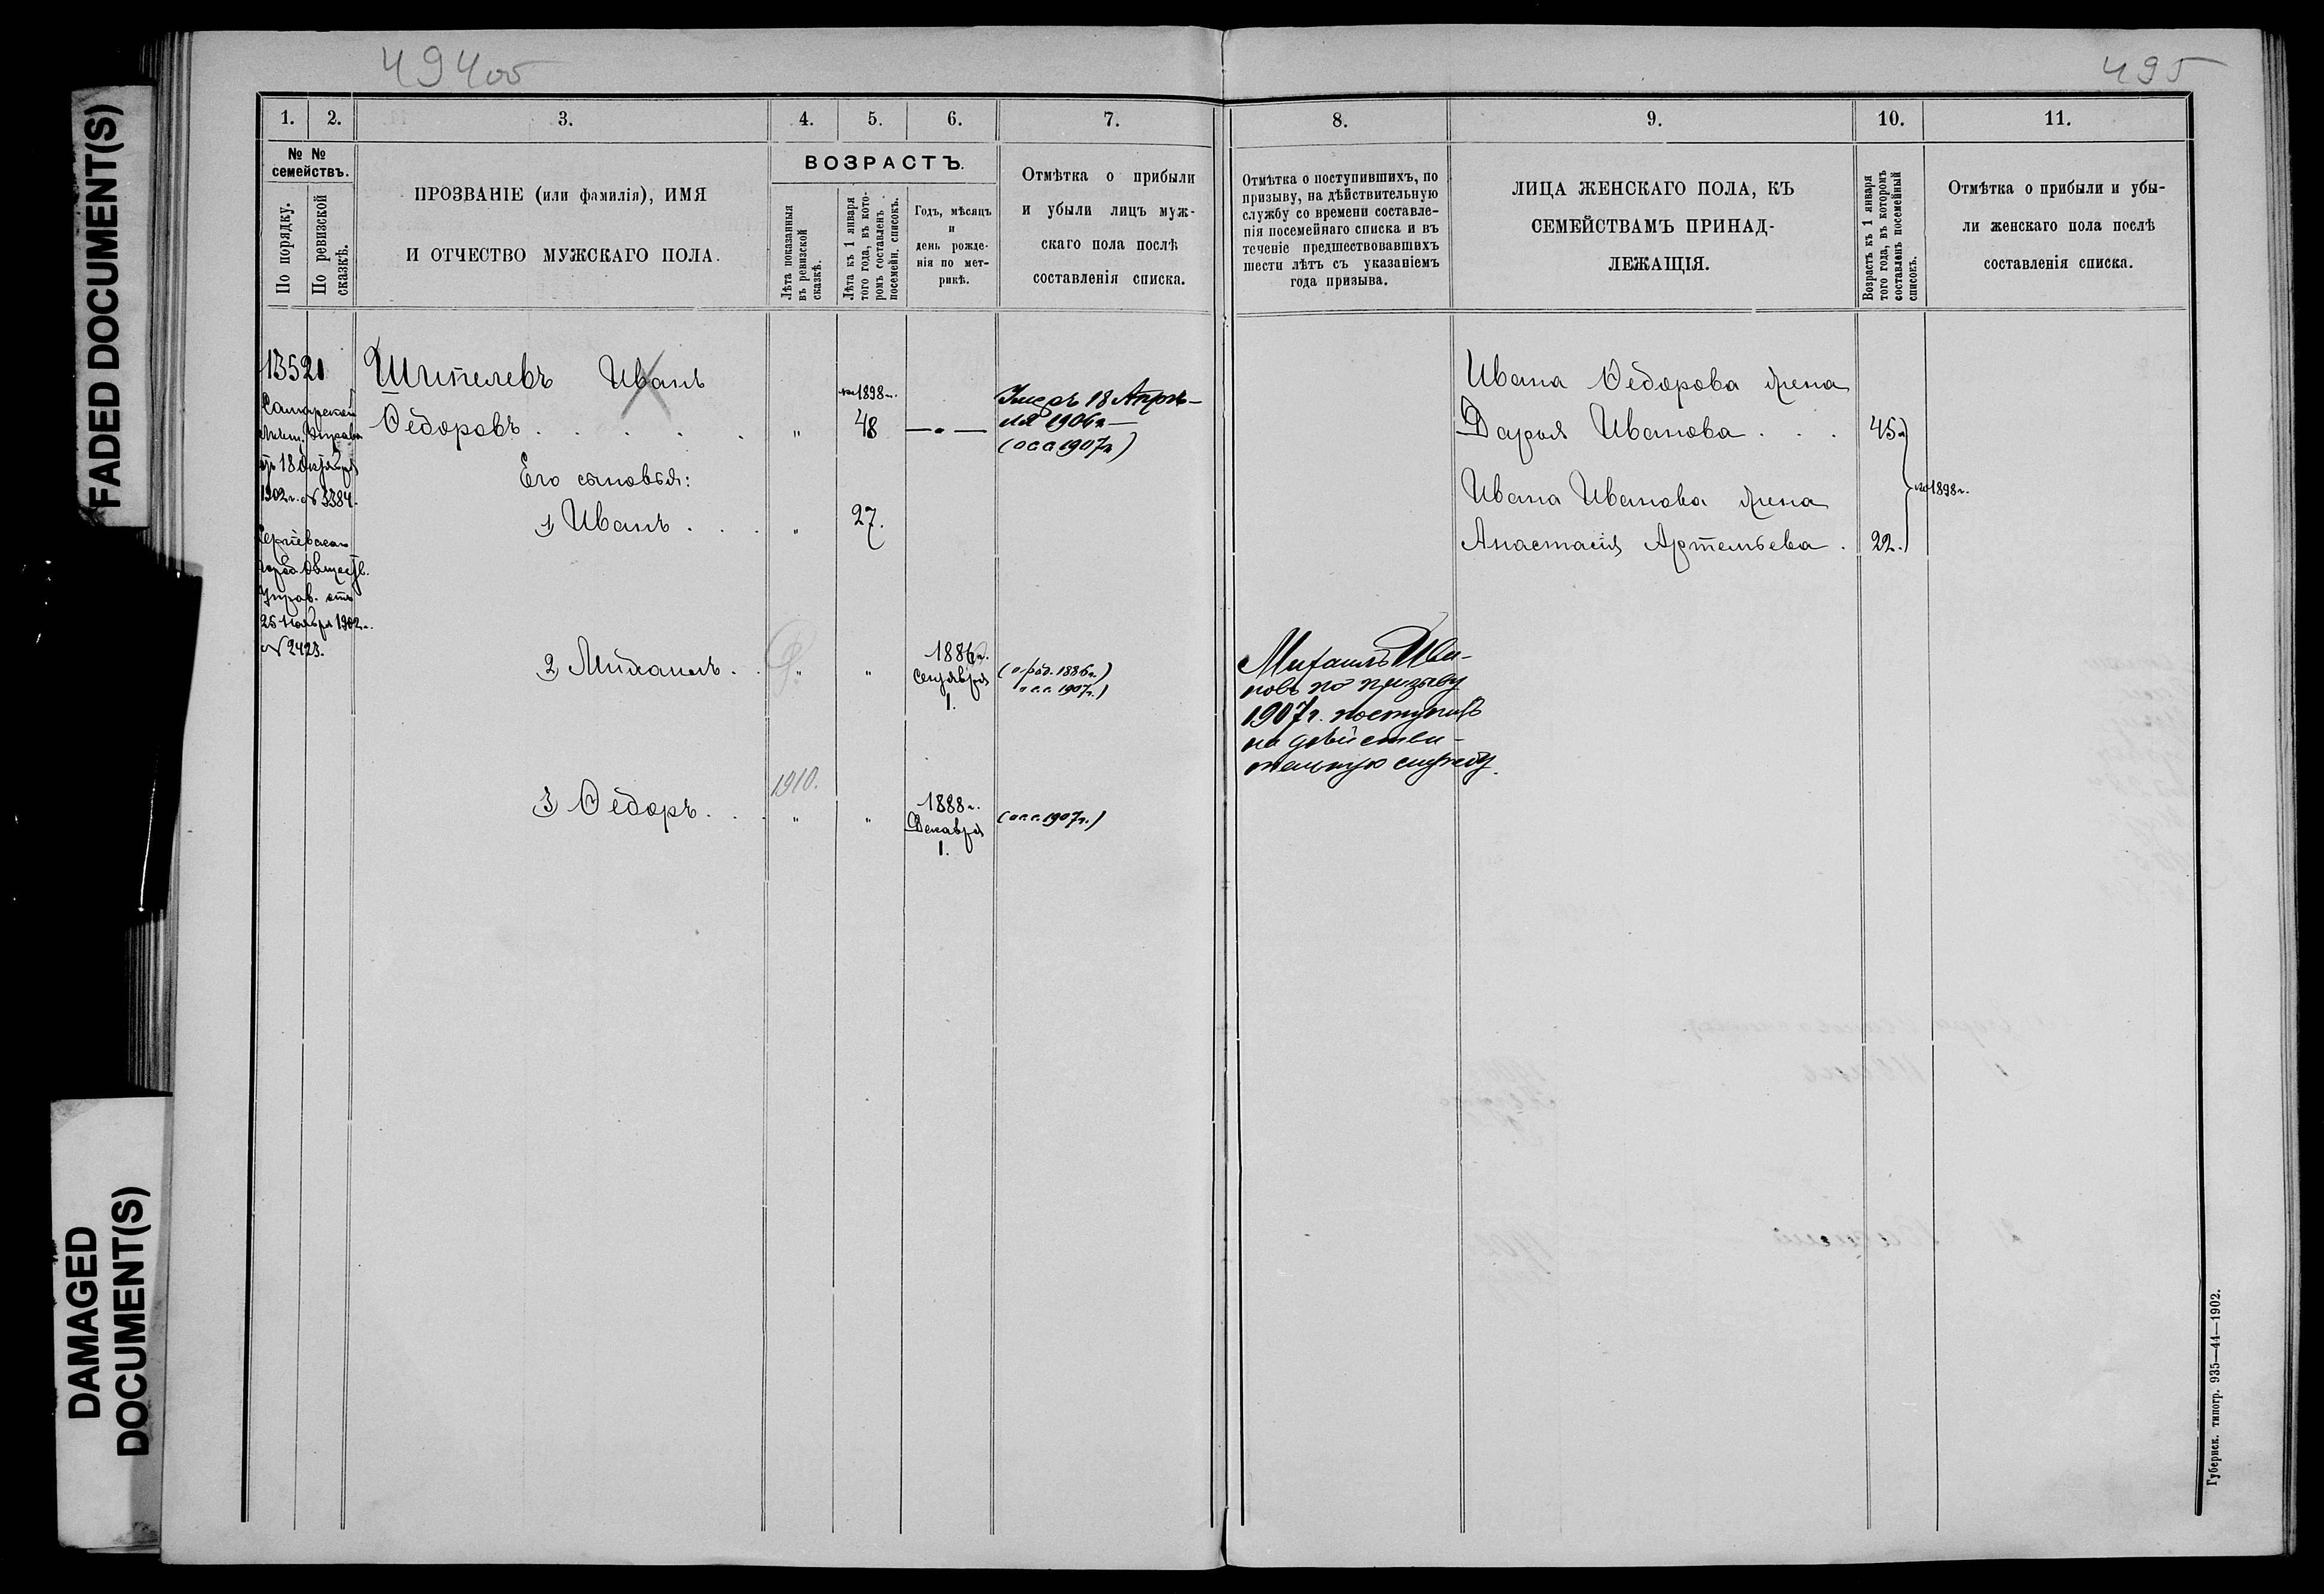 494об
495
FADED DOCUMENT(S)
DAMAGED
DOCUMENT(S)
1. 2. 3. 4. 5. 6. 7.
№ №
семействъ.
По порядку.
По ревизской
сказкѣ.
ПРОЗВАНІЕ (или фамилія), ИМЯ
И ОТЧЕСТВО МУЖСКАГО ПОЛА.
ВОЗРАСТЪ.
Лѣта показанныя
въ ревизской
сказкѣ.
Лѣта къ 1 января
того года, въ кото-
ромъ составленъ
посемейн. списокъ.
Годъ, мѣсяцъ
и
день рожде-
нія по мет-
рикѣ.
Отмѣтка о прибыли
и убыли лицъ муж-
скаго пола послѣ
составленія списка.
13521
Самарской
Мѣщ. Управы
отъ 18 Октября
1902 г. № 3384.
город. Обществ.
Управ. отъ
25 Ноября 1902 г.
№ 2423.
Шителевъ Иванъ
Ѳедоровъ . . . . . „
на 1898 г.
48 — „ —
Умеръ 18 Апрѣ-
ля 1906 г. —
(о с с 1907 г)
Его сыновья:
1, Иванъ . . . „ 27.
2, Михаилъ . . „ „
1886 г.
Сентября
1.
(о рожд. 1886 г.)
о с с. 1907 г.)
1910.
3, Ѳедоръ . . . „ „
1888 г.
Декабря
1.
(о с с. 1907 г.)
8. 9. 10. 11.
Отмѣтка о поступившихъ, по
призыву, на дѣйствительную
службу со времени составле-
нія посемейнаго списка и въ
теченіе предшествовавшихъ
шести лѣтъ съ указаніемъ
года призыва.
ЛИЦА ЖЕНСКАГО ПОЛА, КЪ
СЕМЕЙСТВАМЪ ПРИНАД-
ЛЕЖАЩІЯ.
Возрастъ къ 1 января
того года, въ которомъ
составленъ посемейный
списокъ.
Отмѣтка о прибыли и убы-
ли женскаго пола послѣ
составленія списка.
Ивана Ѳедорова жена
Дарья Иванова . . . 45
Ивана Иванова жена
на 1898 г.
Анастасія Артемьева . 22.
Михаилъ Ива-
новъ по призыву
1907 г. поступилъ
на дѣйстви-
тельную службу.
Губернск. типогр. 935—44—1902.